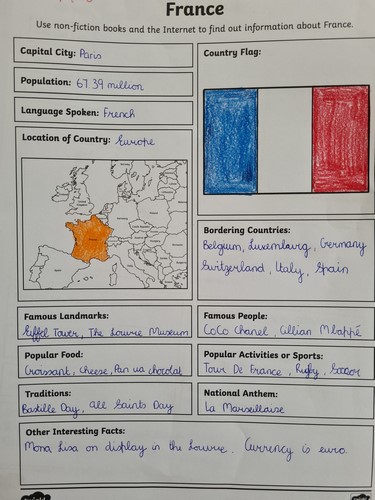 France
Use non-fiction books and the Internet to find out information about France.
Capital City: Paris
Country Flag:
Population: 67.39 million
Language Spoken: French
Location of Country: Europe
Bordering Countries:
Belgium, Luxembourg, Germany
Switzerland, Italy, Spain
Famous Landmarks:
Eiffel Tower, The Louvre Museum
Famous People:
CoCo Chanel, Cillian Mbappé
Popular Food:
Croissant, cheese, Pan ua chocolat
Popular Activities or Sports:
Tour De France, Rugby, Soccer
Traditions:
Bastille Day, All Saints Day
National Anthem:
La Marseillaise
Other Interesting Facts:
Mona Lisa on display in the Louvre. Currency is euro.